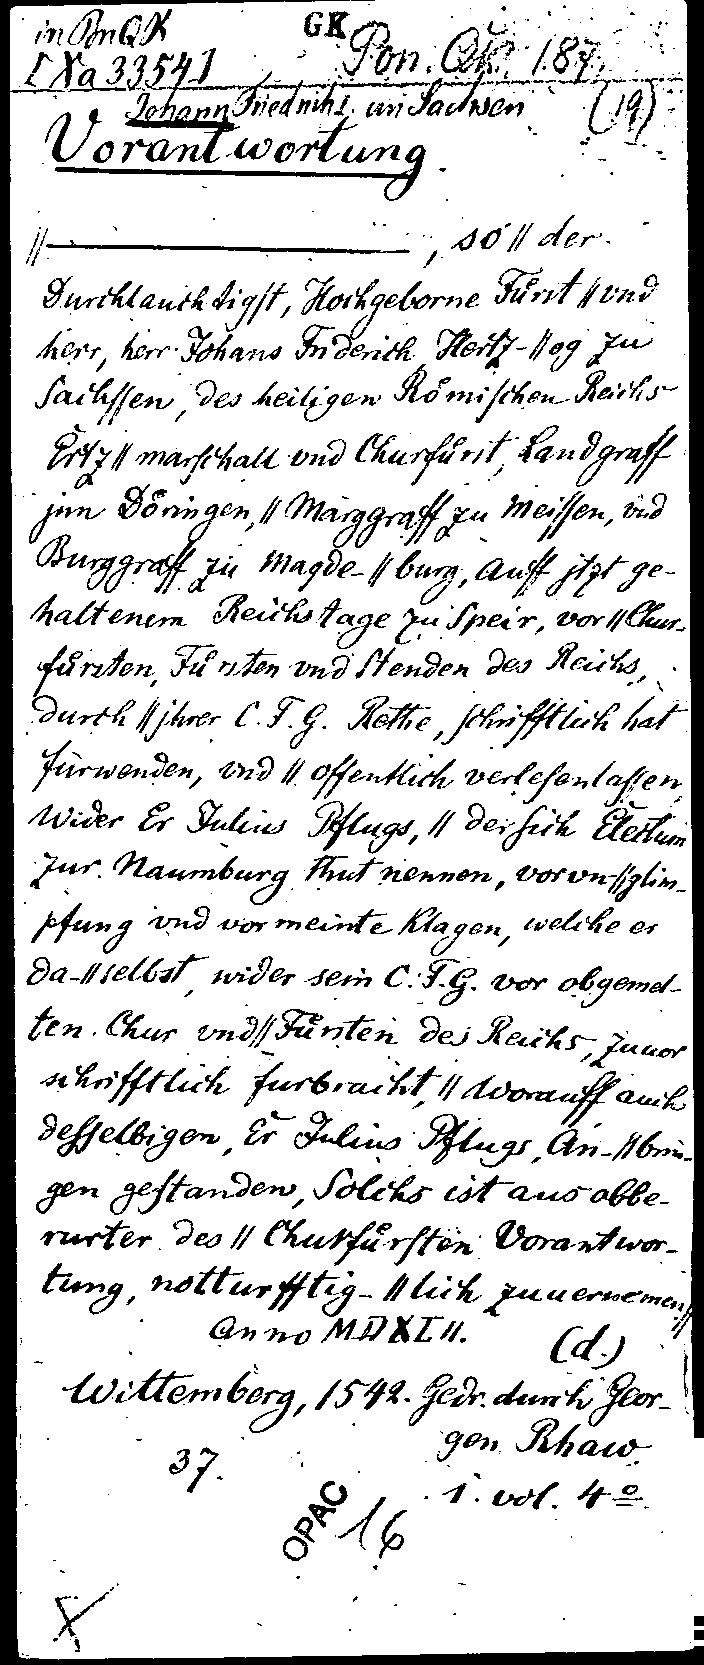 in Pn Qk
IXa 33541
GK
Pon. Qk. 187,
(19)
Johann Friedrichs, un Sachsen
Vorantwortung.
// ——— , so // der
Durchlauchtigst, Hochgeborne Fürst // vnd
herr, herr Johans Friderich Hertz-//og zu
Sachssen, des heiligen Römischen Reichs
Ertz // marschalt vnd Churfürst, Landgraff
jnn Döringen, // Marggraff zu Meissen, vnd
Burggraff zu Magde-//burg, Auff jtzt ge-
haltenem Reichstage zu Speir, vor // Chur-
fürsten, Fürsten vnd Stenden des Reichs,
durch // jhrer C. F. G. Rethe, schrifftlich hat
fürwenden, vnd // offentlich verlesen lassen,
Wider Er Julius Pflugs, // der sich Electum
zur Naumburg thut nennen, vorvn-//glim-
pfung vnd vormeinte Klagen, welche er
da-//selbst, wider sein C. F. G. vor obgemel-
ten Chur vnd // Fürsten des Reichs, zuuor
schrifftlich furbracht, // Worauff auch
desselbigen, Er Julius Pflugs, An-//brin-
gen gestanden, Solchs ist aus obbe-
rurter des // Churfürsten Vorantwor-
tung, notturfftig-//lich zuuernemen //
Anno MDXLII.
(d.)
Wittemberg, 1542. Gedr. durch Geor-
gen Rhaw.
37.
1. vol. 4°
OPAC
16